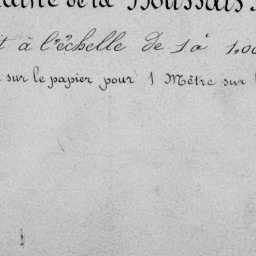 de la Houssais
à l'échelle de 1 à 1.00
sur le papier pour 1 Mètre sur